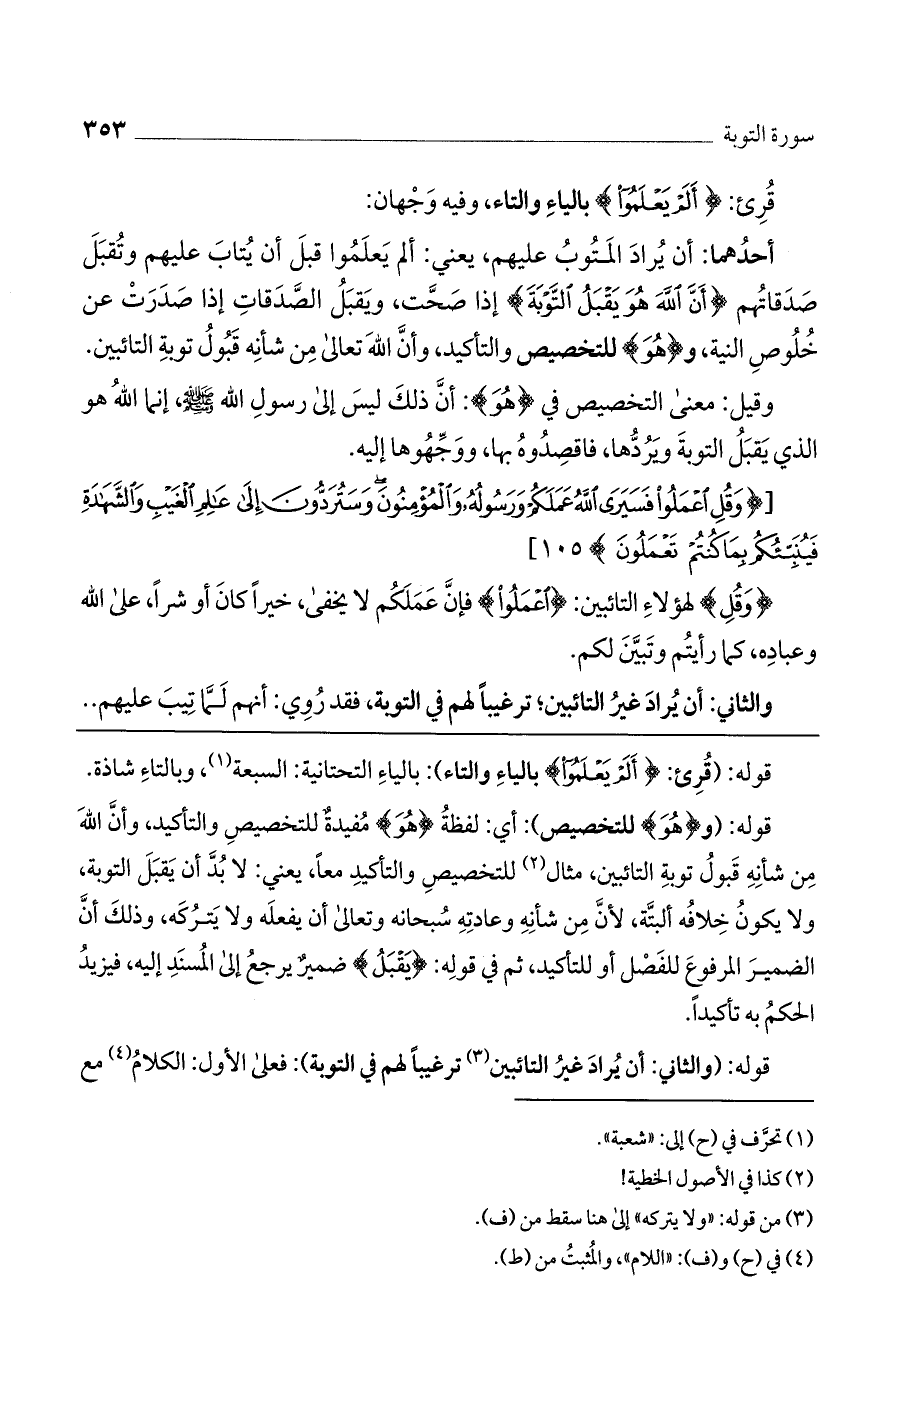 سورة التوبة ٣٥٣
قُرِئ: ﴿ أَلَمْ يَعْلَمُوٓا۟ ﴾ بالياءِ والتاء، وفيه وَجْهان:
أحدُهما: أن يُرادَ المَتُوبُ عليهم، يعني: ألم يَعلَمُوا قبلَ أن يُتابَ عليهم وتُقبَلَ
صَدَقاتُهم ﴿أَنَّ ٱللَّهَ هُوَ يَقْبَلُ ٱلتَّوْبَةَ﴾ إذا صَحَّت، ويَقبَلُ الصَّدَقاتِ إذا صَدَرَتْ عن
خُلُوصِ النية، و﴿هُوَ﴾ للتخصيصِ والتأكيد، وأنَّ اللهَ تعالىٰ مِن شأنِه قَبُولُ توبةِ التائبين.
وقيل: معنىٰ التخصيص في ﴿هُوَ﴾: أنَّ ذلكَ ليسَ إلىٰ رسولِ الله ﷺ، إنما اللهُ هو
الذي يَقبَلُ التوبةَ ويَرُدُّها، فاقصِدُوهُ بها، ووَجِّهُوها إليه.
[﴿ وَقُلِ ٱعْمَلُوا۟ فَسَيَرَى ٱللَّهُ عَمَلَكُمْ وَرَسُولُهُۥ وَٱلْمُؤْمِنُونَ ۖ وَسَتُرَدُّونَ إِلَىٰ عَٰلِمِ ٱلْغَيْبِ وَٱلشَّهَٰدَةِ
فَيُنَبِّئُكُم بِمَا كُنتُمْ تَعْمَلُونَ ﴾ ١٠٥]
﴿وَقُلِ﴾ لهؤلاءِ التائبين: ﴿ٱعْمَلُوا۟﴾ فإنَّ عَمَلَكُم لا يخفىٰ، خيراً كانَ أو شراً، علىٰ الله
وعبادِه، كما رأيتُم وتَبيَّنَ لكم.
والثاني: أن يُرادَ غيرُ التائبين؛ ترغيباً لهم في التوبة، فقد رُوِي: أنهم لَمَّا تِيبَ عليهم..
قوله: (قُرِئ: ﴿ أَلَمْ يَعْلَمُوٓا۟﴾ بالياءِ والتاء): بالياءِ التحتانية: السبعة(١)، وبالتاءِ شاذة.
قوله: (و﴿هُوَ﴾ للتخصيص): أي: لفظةُ ﴿هُوَ﴾ مُفيدةٌ للتخصيصِ والتأكيد، وأنَّ اللهَ
مِن شأنِه قَبُولُ توبةِ التائبين، مثال(٢) للتخصيصِ والتأكيدِ معاً، يعني: لا بُدَّ أن يَقبَلَ التوبة،
ولا يكونُ خِلافُه ألبتَّة، لأنَّ مِن شأنِه وعادتِهِ سُبحانه وتعالىٰ أن يفعلَه ولا يَتركَه، وذلكَ أنَّ
الضميرَ المرفوعَ للفَصْل أو للتأكيد، ثم في قولِه: ﴿يَقْبَلُ﴾ ضميرٌ يرجعُ إلىٰ المُسنَدِ إليه، فيزيدُ
الحكمُ به تأكيداً.
قوله: (والثاني: أن يُرادَ غيرُ التائبين(٣) ترغيباً لهم في التوبة): فعلىٰ الأول: الكلامُ(٤) مع
(١) تحرَّف في (ح) إلى: «شعبة».
(٢) كذا في الأصول الخطية!
(٣) من قوله: «ولا يتركه» إلىٰ هنا سقط من (ف).
(٤) في (ح) و(ف): «اللام»، والمُثبتُ من (ط).